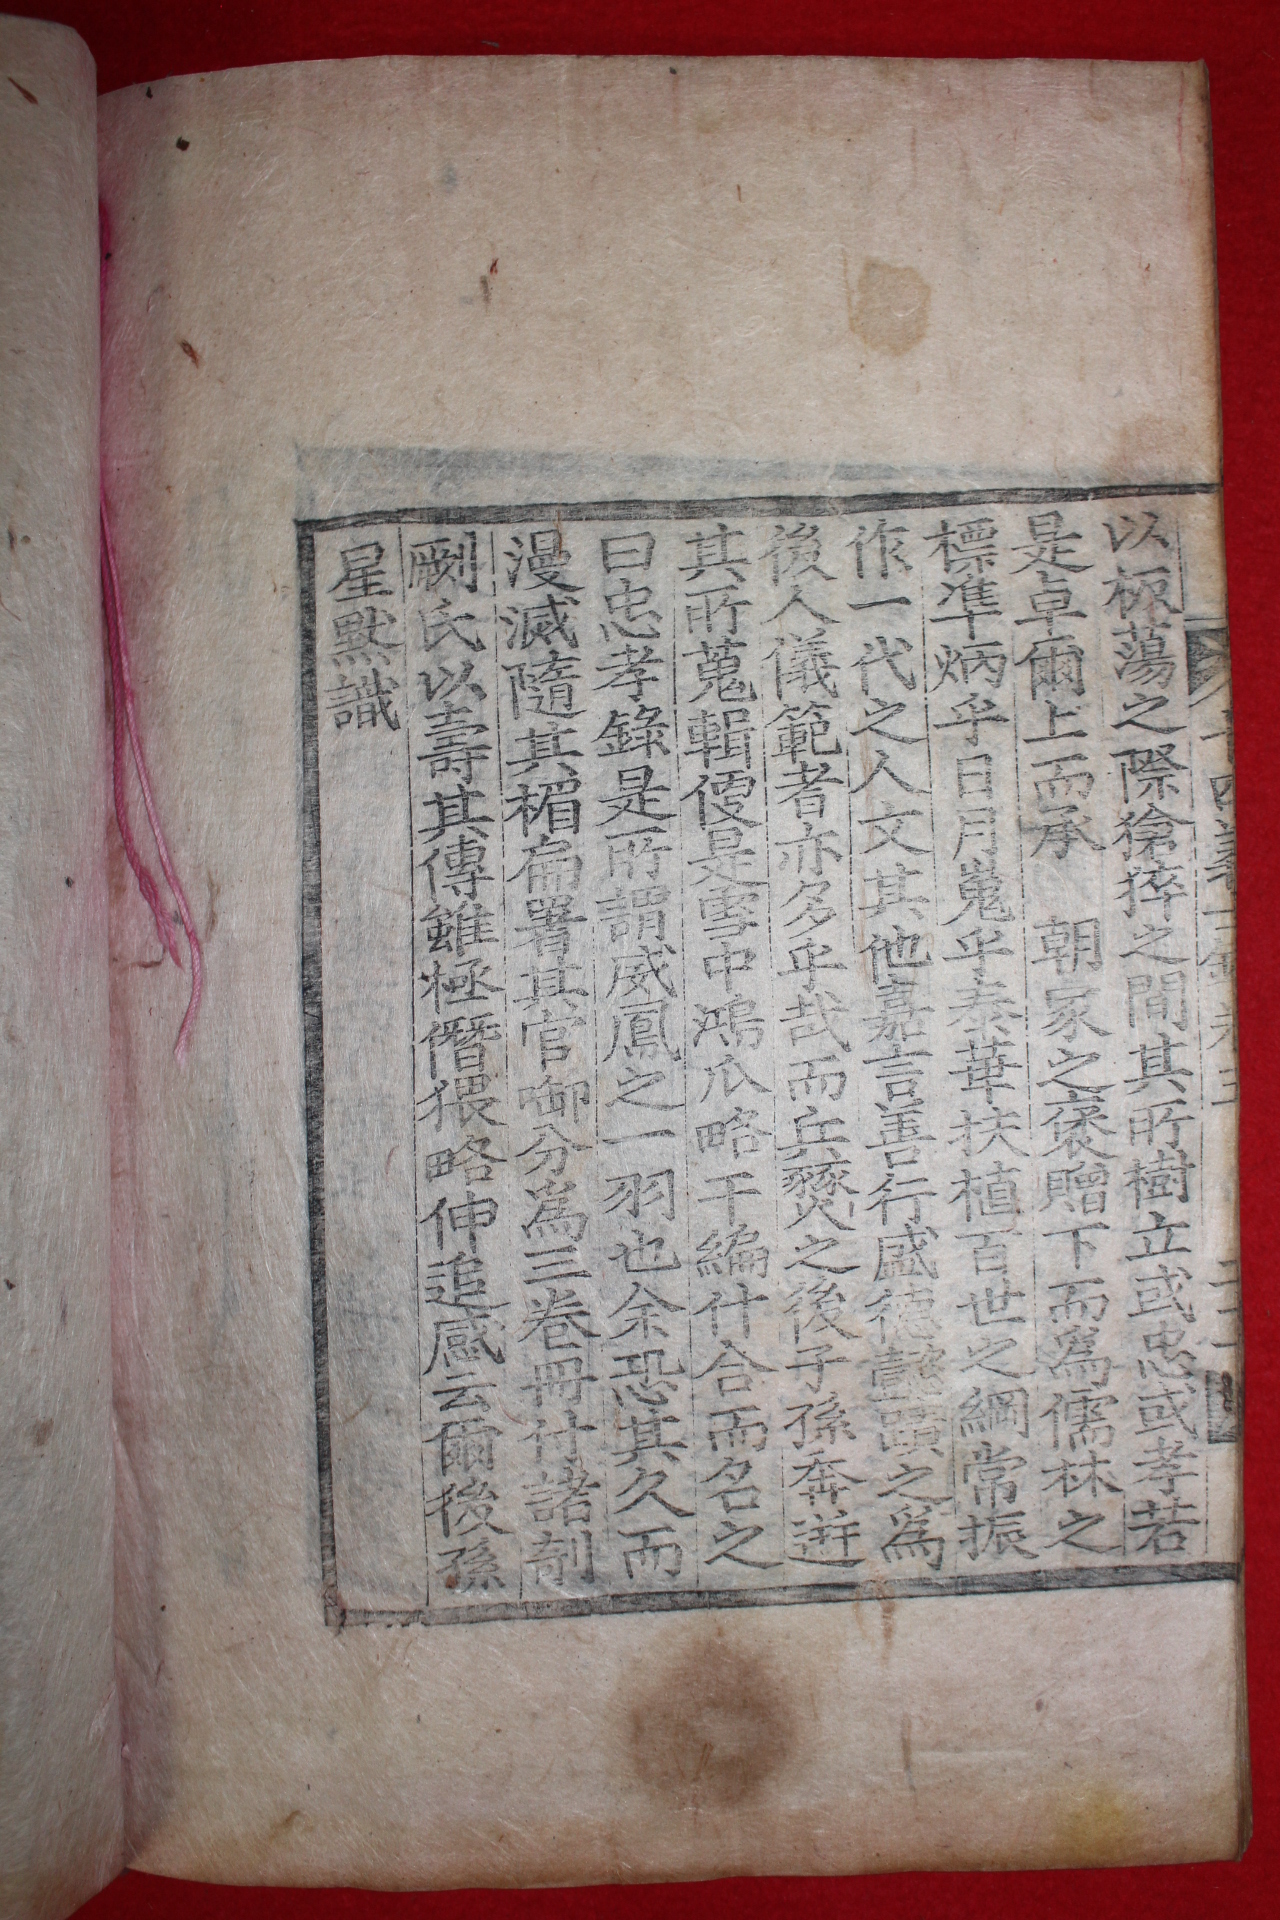 以板蕩之際獊猝之間其所樹立或忠或孝若
是卓爾上而承 朝家之褒贈下而爲儒林之
標準炳乎日月嵬乎泰華扶植百世之綱常振
作一代之人文其他嘉言善行盛德懿蹟之爲
後人儀範者亦多乎哉而兵燹之後子孫奔逬
其所蒐輯便是雪中鴻爪略干編什合而名之
曰忠孝錄是所謂威鳳之一羽也余恐其久而
漫滅隨其楣扁署其官啣分爲三卷冊付諸剞
劂氏以壽其傳雖極僭猥略伸追感云爾後孫
星默識